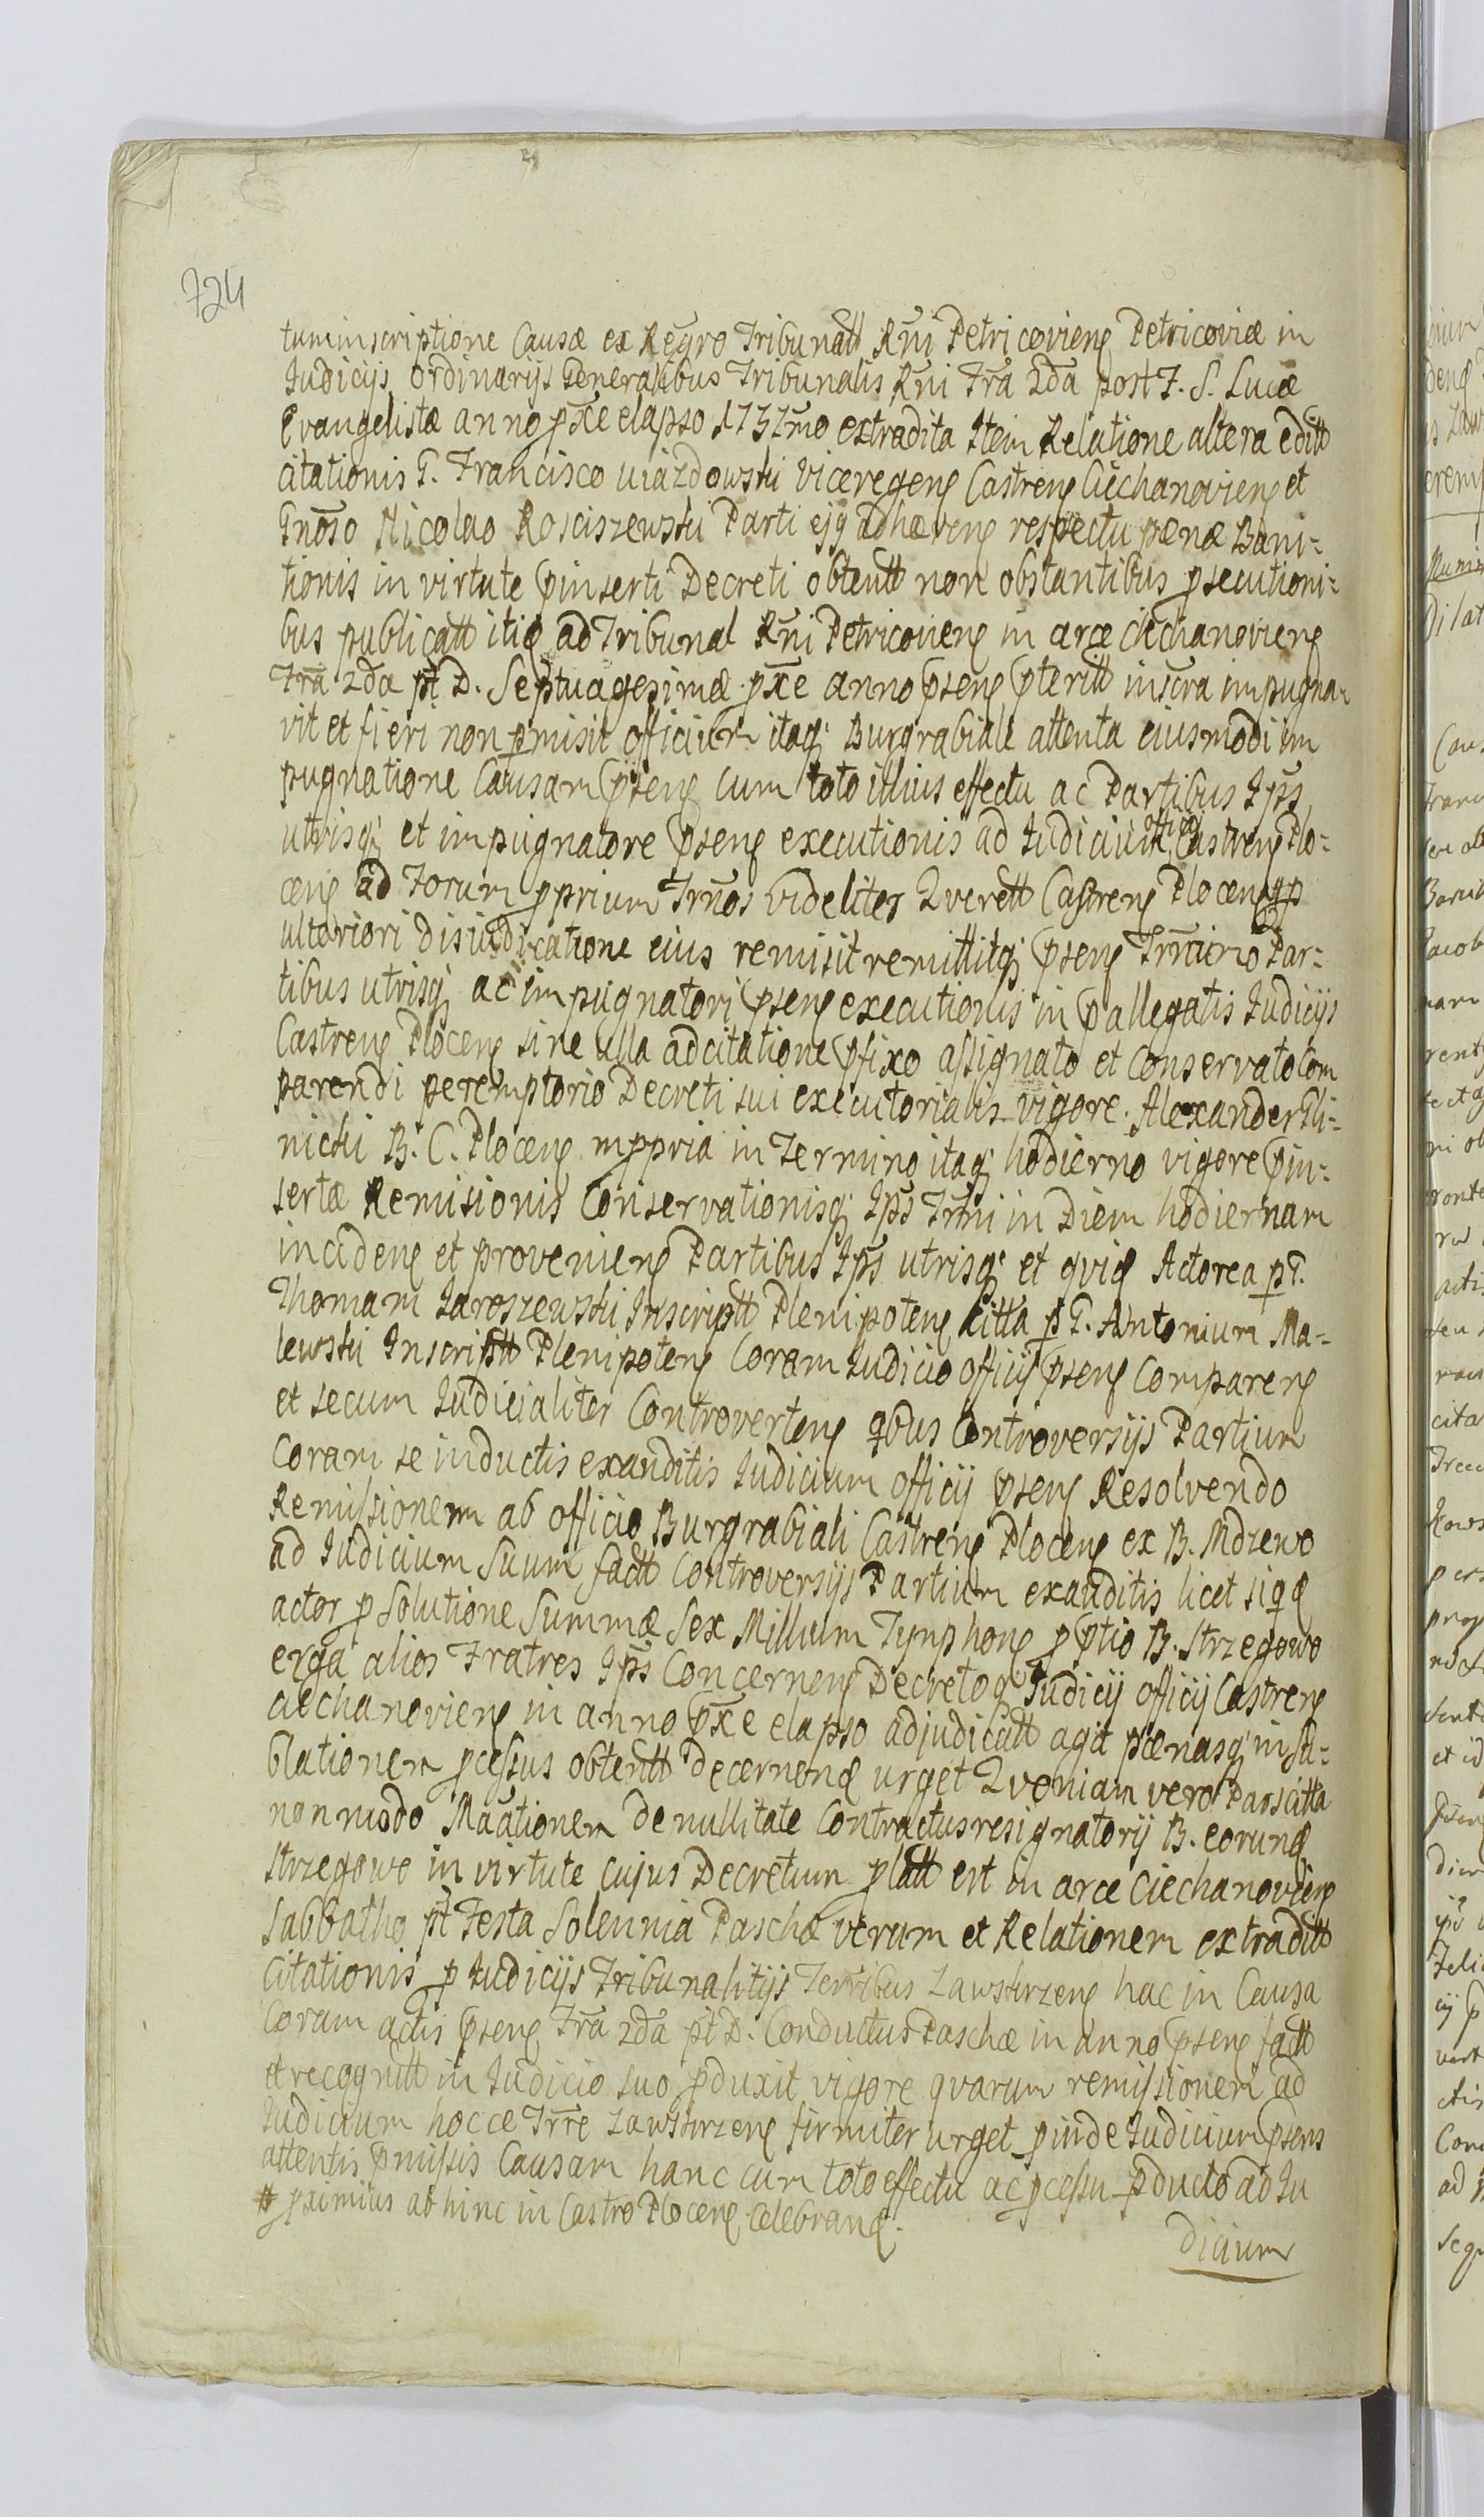 724
tuminscriptione Causæ ex Regro Tribunatt Rni Petricovieng Petricoviæ in
Judicijs ordinarijs Generalibus Tribunalis Rni Fra 2da post F. S. Lucæ
Evangelistæ anno pxe elapso 1737mo extradita Item Relatione altera editt
citationis G. Francisco Uiazdowski Viceregeng Castreng Ciechanovieng et
Gnoso Nicolao Rosciszewski Parti ejq adhæreng respectu pænæ Bani-
tionis in virtute pinserti Decreti obtentt non obstantibus psecutioni-
bus publicatt itiq ad Tribunal Rni Petricovieng in arce Ciechanovieng
Fra 2da pt D. Septuagesimæ pxe anno pseng pteritt inscra impugna-
vit et fieri non pmisit officium itaq Burgrabiale attenta eiusmodi im
pugnatione Causam pseng cum toto illius effectu ac Partibus Ips
utrisq et impugnatore pseng executionis ad Judicium officij Castreng Plo-
ceng ad Forum pprium Trnos videlitet Querett Castreng Ploceng p
ulteriori disiudicatione eius remisit remittitq pseng Trmino Par-
tibus utrisq ac impugnatori pseng executionis in pallegatis Judicijs
Castreng Ploceng sine ulla adcitatione pfixo assignato et Conservato Com
parendi peremptorio Decreti sui executorialis vigore. Alexander Gli-
nicki B. C. Ploceng mppria in Termino itaq hodierno vigore pin-
sertæ Remisionis Conservationisq Ips Trmi in Diem hodiernam
incideng et provenieng Partibus Ips utrisq et qviq Actorea p G.
Thomam Jaroszewski Inscriptt Plenipoteng Citta p G. Antonium Ma-
lewski Inscriptt Plenipoteng Coram Judicio officij pseng Compareng
et secum Judicialiter Controverteng qbus Controversijs Partium
Coram se inductis exauditis Judicium officij pseng Resolvendo
Remissionem ab officio Burgrabiali Castreng Ploceng ex B. Mdzewo
ad Judicium Suum factt Controversijs Partium exauditis licet siqq
actor p Solutione Summæ Sex Millium Tynphong p ptio B. Strzegowo
erga alios Fratres Ips Concerneng Decretoq Judicij officij Castreng
Ciechanovieng in anno pxe elapso adjudicatt agit pænasq in su-
blationem pcessus obtentt Decernenq urget Qvoniam vero Pars citta
non modo Maationem de nullitate Contractus resignatorij B. eorunq
Strzegowo in virtute cujus Decretum platt est in arce Ciechanovieng
Sabbatho pt Festa Solennia Paschæ verum et Relationem extraditt
Citationis p Judicijs Tribunalitijs Terribus Zawskrzeng hac in Causa
Coram actis pseng Fra 2da pt D. Conductus Paschæ in anno pseng factt
et recognitt in Judicio suo pduxit vigore qvarum remissionem ad
Judicium hocce Trre Zawskrzeng firmiter urget pinde Judicium psens
attentis pmissis Causam hanc cum toto effectu ac pcessu pducto ad Ju
# pximius ab hinc in Castro Ploceng Celebranq.
dicium